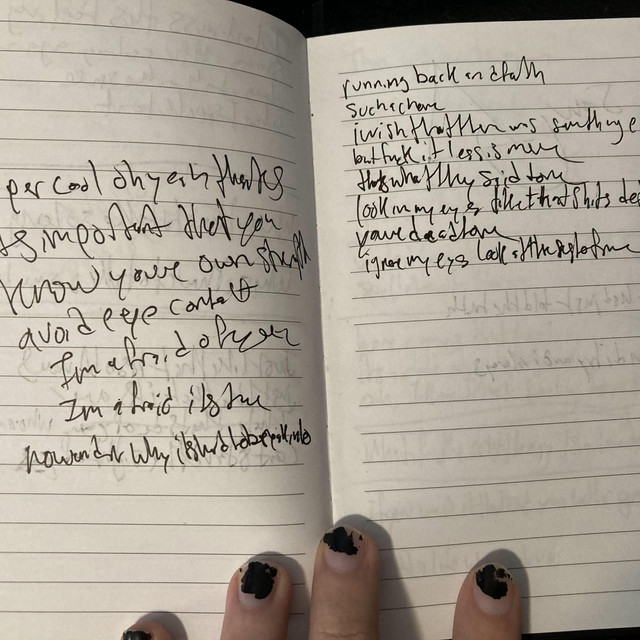 per cool oh yeah thanks
its important that you
know you're own strength
avoid eye contact
I'm afraid of you
I'm afraid its true
no wonder why its hard to
running back and forth
such a chore
i wish that there was something
but fuck it less is more
thats what they said to me
look in my eyes like that shits
you're dead to me
ignore my eyes look at the rest of me